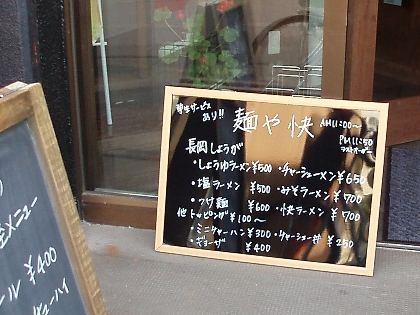 学生サービス
あり!!
麺や 快
AM11:00〜
PM11:50
ラストオーダー
長岡しょうが
・しょうゆラーメン ¥500 ・チャーシューメン ¥650
・塩ラーメン ¥500 ・みそラーメン ¥700
・つけ麺 ¥600 ・快ラーメン ¥700
他トッピング ¥100〜
・ミニチャーハン ¥300 ・チャーシュー丼 ¥250
・ギョーザ ¥400
メニュー
¥400
ール
チューハイ